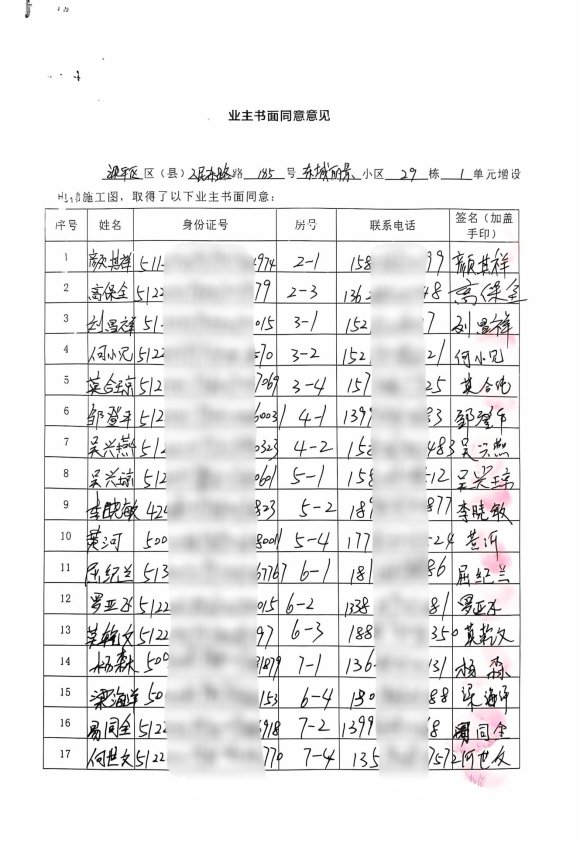 业主书面同意意见
梁平区区（县）人民东路路 185 号 东城丽景 小区 29 栋 1 单元增设
施工图，取得了以下业主书面同意：
序号 姓名 身份证号 房号 联系电话 签名（加盖手印）
1 颜其祥 511 4974 2-1 158 99 颜其祥
2 高保全 5122 79 2-3 136 48 高保全
3 刘昌祥 51 015 3-1 152 7 刘昌祥
4 何小兄 5122 070 3-2 152 21 何小兄
5 莫合琼 512 7069 3-4 157 25 莫合
6 邹登平 512 60031 4-1 1399 33 邹登平
7 吴兴燕 512 0323 4-2 158 483 吴兴燕
8 吴兴琼 512 0601 5-1 158 12 吴兴琼
9 李晓敏 424 823 5-2 189 877 李晓敏
10 黄河 500 8001 5-4 177 24 黄河
11 屈纪兰 513 67767 6-1 181 86 屈纪兰
12 罗亚水 5122 015 6-2 1338 81 罗亚水
13 莫乾文 5122 97 6-3 188 350 莫乾文
14 杨森 500 31879 7-1 136 131 杨森
15 梁海洋 50 153 6-4 130 88 梁海洋
16 易同全 5122 6918 7-2 1399 8 易同全
17 何世文 5122 770 7-4 135 7572 何世文